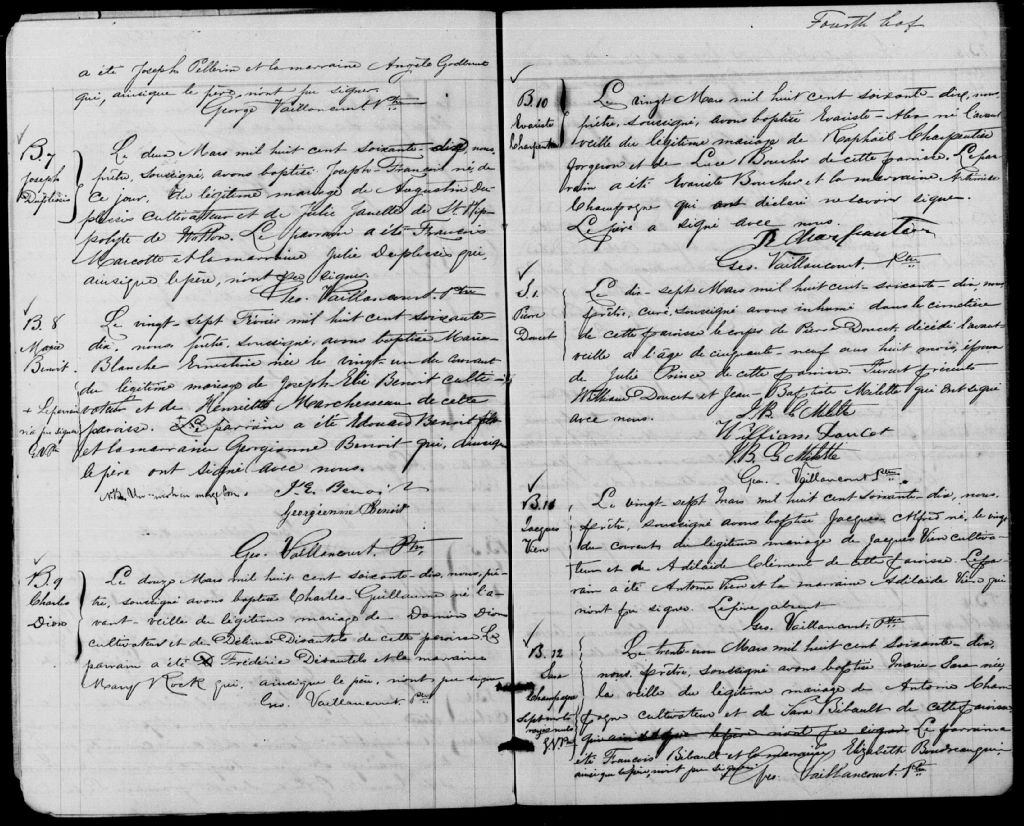 a été Joseph Pellerin et la marraine Angèle
qui, ainsique le père, n'ont pu signer.
George Vaillancourt Ptre
B. 7
Joseph
Duplessis
Le deux Mars mil huit cent soixante-dix, nous,
prêtre, soussigné, avons baptisé Joseph-François né de
ce jour, du légitime mariage de Augustin Du-
plessis cultivateur et de Julie Janelle de St. Hip-
polyte de Wotton. Le parrain a été François
Marcotte et la marraine Julie Duplessis qui,
ainsique le père, n'ont pu signer.
Geo. Vaillancourt. Ptre
B. 8
Marie
Benoit.
+ Le parrain
n'a pu signer
G.V. Ptr
Le vingt-sept Février mil huit cent soixante
dix, nous prêtre, soussigné, avons baptisé Marie-
Blanche Ernestine née le vingt-un du courant
du légitime mariage de Joseph-Elie Benoit culti-
vateur et de Henriette Marchesseau de cette
paroisse. Le parrain a été Edouard Benoit
et la marraine Georgianne Benoit qui, ainsique
le père ont signé avec nous.
J. E. Benoit
Georgienne Benoit
Geo. Vaillancourt, Ptre,
B. 9
Charles
Dion
Le douze Mars mil huit cent soixante-dix, nous, prê-
tre, soussigné avons baptisé Charles-Guillaume né l'a-
vant-veille du légitime mariage de Damien Dion
cultivateur et de Délima Désautels de cette paroisse Le
parrain a été Frédéric Désautels et la marraine
Mary Rock qui, ainsique le père, n'ont pu signer
Geo. Vaillancourt. Ptre
Fourth
B. 10
Evariste
Charpentier
Le vingt Mars mil huit cent soixante-dix, nous,
prêtre, soussigné, avons baptisé Evariste- né l'avant
veille du légitime mariage de Raphaël Charpentier
forgeron et de Luce Boucher de cette paroisse. Le par-
rain a été Evariste Boucher et la marraine
Champagne qui ont déclaré ne savoir signer.
Le père a signé avec nous.
R Charpentier
Geo. Vaillancourt, Ptre
S. 1
Pierre
Doucet
Le dix-sept Mars mil huit cent-soixante-dix, nous,
prêtre, curé, soussigné avons inhumé dans le cimetière
de cette paroisse le corps de Pierre Doucet, décédé l'avant
veille à l'âge de cinquante-neuf ans huit mois, époux
de Julie Prince de cette paroisse. Furent présents
William Doucet et Jean-Baptiste Milette qui ont signé
avec nous.
J. B. G Milette
William Doucet
J. B. G Milette
Geo. Vaillancourt Ptre.
B. 11
Jacques
Vien
Le vingt-sept Mars mil huit cent soixante-dix, nous,
prêtre, soussigné avons baptisé Jacques Alfred né, le vingt
du courant du légitime mariage de Jacques Vien cultiva-
teur et de Adélaïde Colément de cette paroisse. Le par-
rain a été Antoine Vien et la marraine Adélaïde Vien qui
n'ont pu signer. Le père absent
Geo. Vaillancourt. Ptre
B. 12
Sara
Champagne
Sept mots
rayés nuls
G.V. Ptr
Le trente-un Mars mil huit cent soixante-dix,
nous, prêtre, soussigné avons baptisé Marie-Sara née,
la veille du légitime mariage de Antoine Cham-
pagne cultivateur et de Sara Bibault de cette paroisse
qui ainsique le père n'ont pu signer Le parrain a
été François Bibault et la marraine Elizabeth Boudreau qui
ainsique le père, n'ont pu signer Geo. Vaillancourt. Ptre